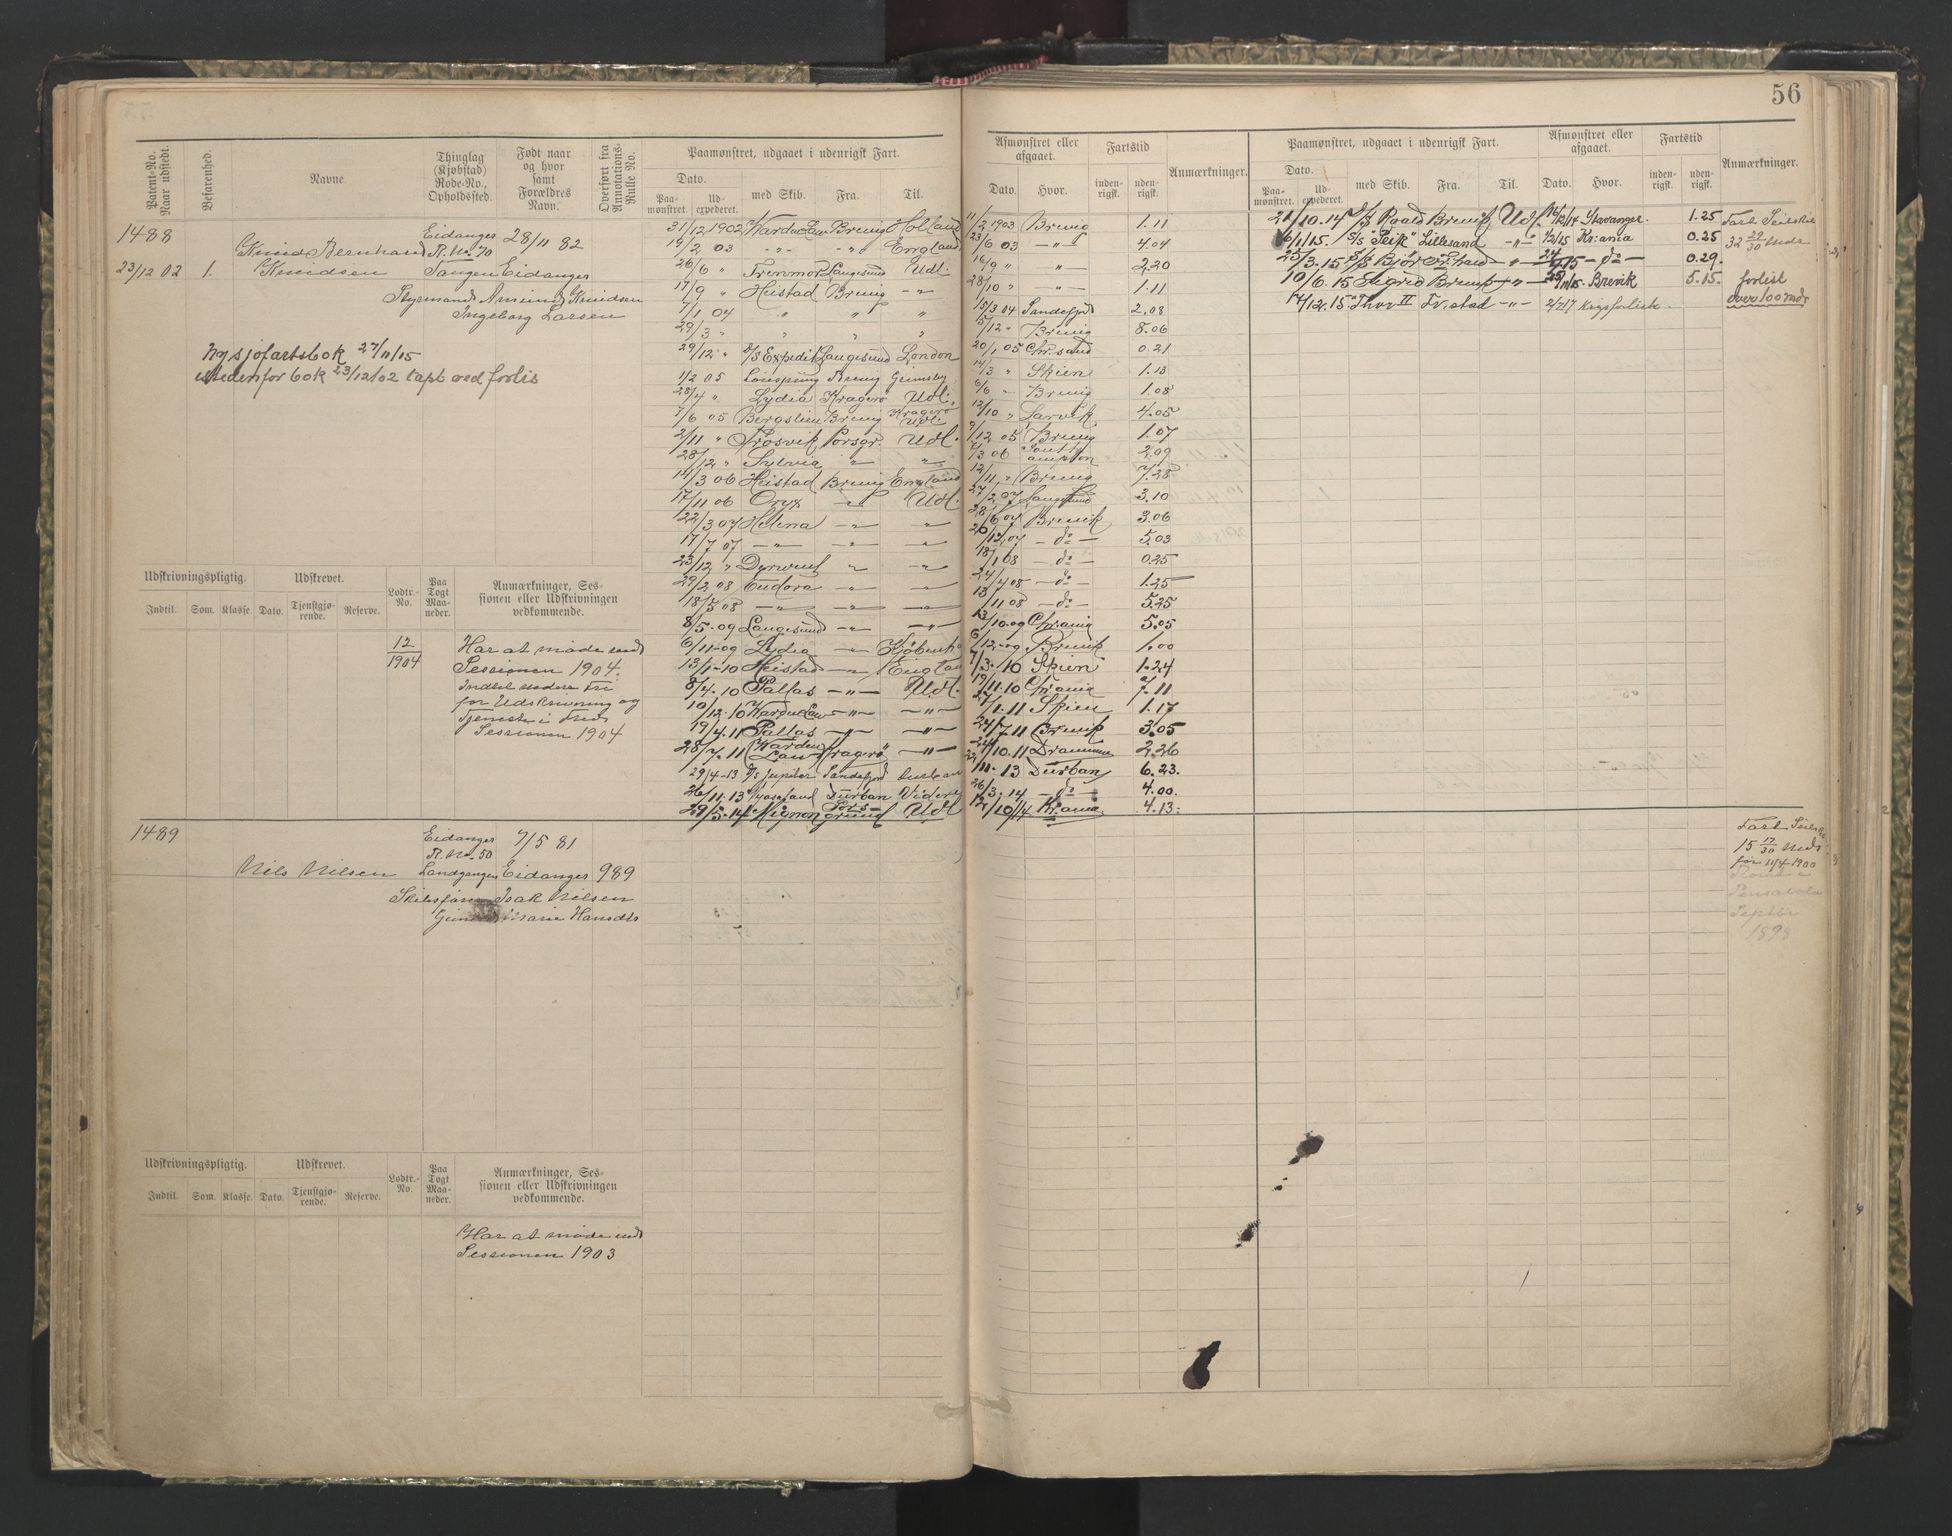 56
Patent-No. Naar udstedt.
Befarenhed.
Navne.
Thinglag (Kjøbstad) Rode-No., Opholdssted.
Født naar og hvor samt Forældres Navn.
Overført fra Annotations-Rulle No.
Paamønstret, udgaaet i udenrigsk Fart.
Dato.
Paamønstret. Udexpederet.
med Skib. Fra. Til.
Afmønstret eller afgaaet.
Dato. Hvor.
Fartstid
indenrigsk. udenrigsk.
Anmærkninger.
Paamønstret, udgaaet i udenrigsk Fart.
Dato.
Paamønstret. Udexpederet.
med Skib. Fra. Til.
Afmønstret eller afgaaet.
Dato. Hvor.
Fartstid
indenrigsk. udenrigsk.
Anmærkninger.
1488
23/12 02 1.
Knud Bernhard
Knudsen
Eidanger
R. No. 70
28/11 82
Tangen Eidanger
Styrmand Amund Knudsen
Ingeborg Larsen
Ny sjøfartsbok 27/11/15
istedenfor bok 23/12/02 tapt ved forlis
31/12 1902 Brevig Holland 11/2 1903 Brevig 1.11
14/2 03 England 23/6 03 4.04
26/6 Langesund Udl. 16/9 2.20
17/9 Heistad Brevig 28/10 1.11
7/1 04 15/3 04 Sandefjord 2.08
29/3 5/12 Brevig 8.06
29/12 D/S Expedit Langesund London 20/1 05 Chr.sand 0.21
1/2 05 Brevig Grimsby 14/3 Skien 1.13
28/4 Lydia Kragerø Udl. 6/6 Brevig 1.08
7/6 05 Bergslien Brevig Kragerø Udl. 12/10 Larvik 4.05
2/11 Porsgr. Udl. 9/12 05 Brevig 1.07
28/12 Sylvia 7/3 06 2.09
14/3 06 Heistad Brevig England 12/11 Brevig 7.28
17/11 06 Oryx Udl. 27/2 07 Langesund 3.10
22/3 07 Helena 28/6 07 Brevik 3.06
17/7 07 20/12 07 do 5.03
23/12 Derwent 18/1 08 do 0.25
29/2 08 Eudora 24/4 08 do 1.25
18/5 08 13/11 08 do 5.25
8/5-09 Langesund 13/10-09 Chr.ania 5.05
6/11-09 Lydia Kjøbenh. 6/12-09 Brevik 1.00
13/1-10 Heistad England 7/3-10 Skien 1.24
8/4.10 Pallas Udl. 19/11.10 Chr.ania 7.11
10/12.10 27/1.11 Skien 1.17
19/4.11 Pallas 24/7.11 Brevik 3.05
28/7.11 Kragerø 24/10.11 Drammen 2.26
29/4-13 D/S Jupiter Sandefjord Durban 22/11-13 Durban 6.23.
26/11.13 Durban Videre 26/3.14 do 4.00.
29/5.14 Mignon Porsgrund Udl. 12/10/14 Kr.ania 4.13.
21/10.14 Roald Brevig Udl. 16/12/14 Stavanger 1.25
6/1/15. S/S "Peik" Lillesand 1/2/15 Kr.ania 0.25
25/3.15 Bjør Fr.stad do 0.29.
10/6.15 Sigrid Brevik 25/11/15. Brevik 5.15.
14/12.15 Thor II Fr.stad 2/2 17 krigsforlist.
Fart Seilskib
32 29/30 Mdr
forlist
over 100 mdr
Udskrivningspligtig.
Indtil. Som. Klasse.
Udskrevet.
Dato. Tjenstgjørende. Reserve.
Lodtr.-No.
Paa Togt Maaneder.
Anmærkninger, Sessionen eller Udskrivningen vedkommende.
12/1904
Har at møde ved
Sessionen 1904.
Indtil videre fri
for Udskrivning og
Tjeneste i Fred
Sessionen 1904
1489
Nils Nilsen
Eidanger
R. No. 50
7/5 81
Landgangen Eidanger 989
Skibsfører Isak Nilsen
Marie Hansdtr
Fart Seilsk.
15 17/30 Mdr.
før 11/4 1900
Rømt i
Pensacola
Septbr
1898
Udskrivningspligtig.
Indtil. Som. Klasse.
Udskrevet.
Dato. Tjenstgjørende. Reserve.
Lodtr.-No.
Paa Togt Maaneder.
Anmærkninger, Sessionen eller Udskrivningen vedkommende.
Har at møde ved
Sessionen 1903